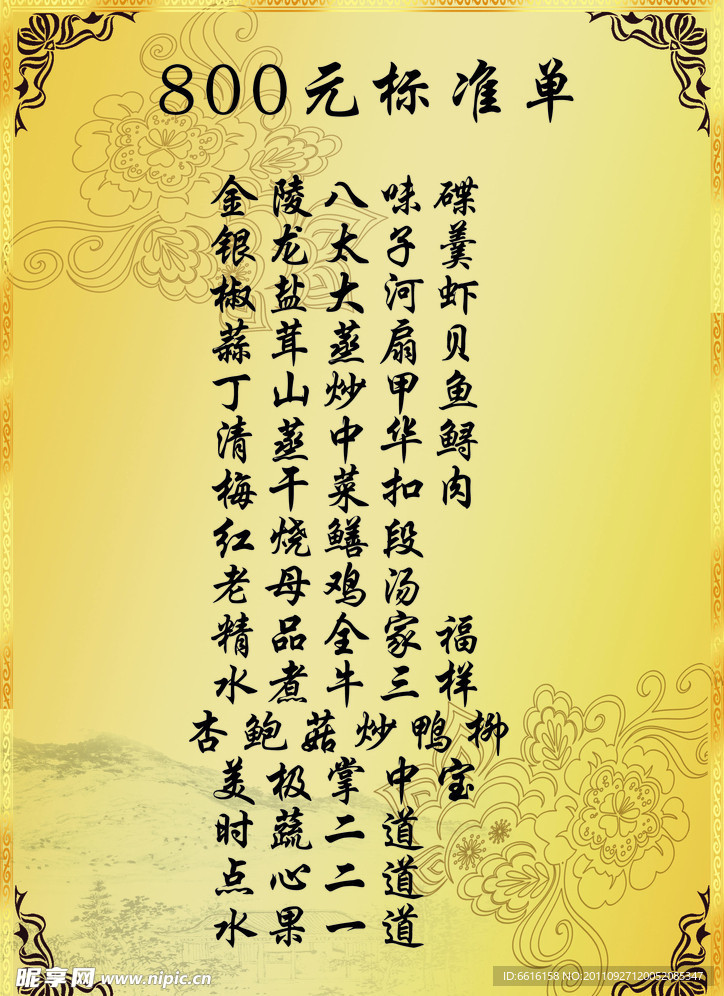 800元标准单
金陵八味碟
银龙太子羹
椒盐大河虾
蒜茸蒸扇贝
丁山炒甲鱼
清蒸中华鲟
梅干菜扣肉
红烧鳝段
老母鸡汤
精品全家福
水煮牛三样
杏鲍菇炒鸭柳
美极掌中宝
时蔬二道
点心二道
水果一道
昵享网 www.nipic.cn
ID:6616158 NO:20110927120052085347